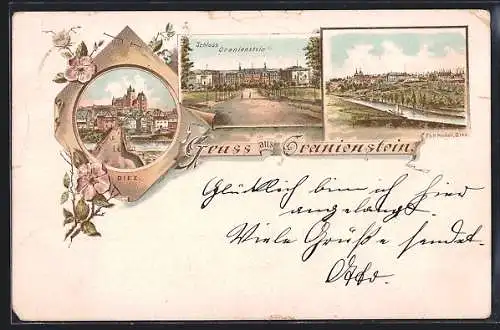 Schloss
Oranienstein
DIEZ.
Gruss aus Oranienstein.
Glücklich bin ich hier
angelangt.
Viele Grüße sendet
Otto.